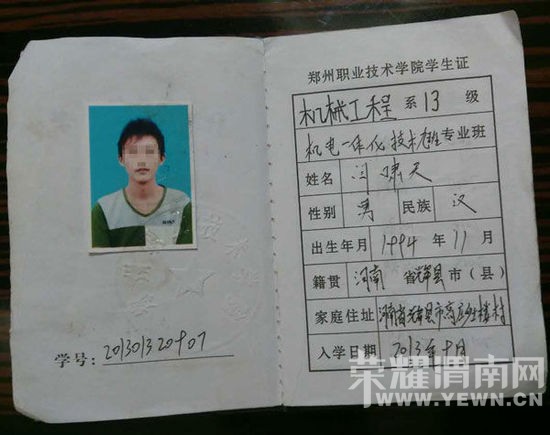 学号: 201301320907
郑州职业技术学院学生证
机械工程 系 13 级
机电一体化技术 专业 班
姓名 闫啸天
性别 男 民族 汉
出生年月 1994 年 11 月
籍贯 河南 省辉县市(县)
家庭住址 河南省辉县市高庄乡 楼村
入学日期 2013年9月
荣耀渭南网
WWW.YEWN.CN